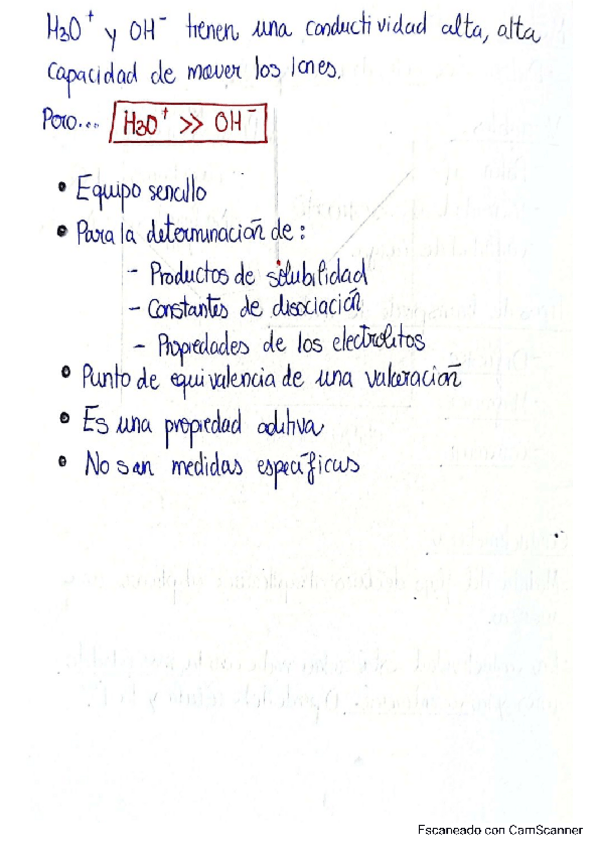 H3O+ y OH- tienen una conductividad alta, alta
capacidad de mover los Iones.
Pero... H3O+ >> OH-
• Equipo sencillo
• Para la determinación de:
- Productos de solubilidad
- Constantes de disociación
- Propiedades de los electrolitos
• Punto de equivalencia de una valoración
• Es una propiedad aditiva
• No son medidas específicas
Escaneado con CamScanner